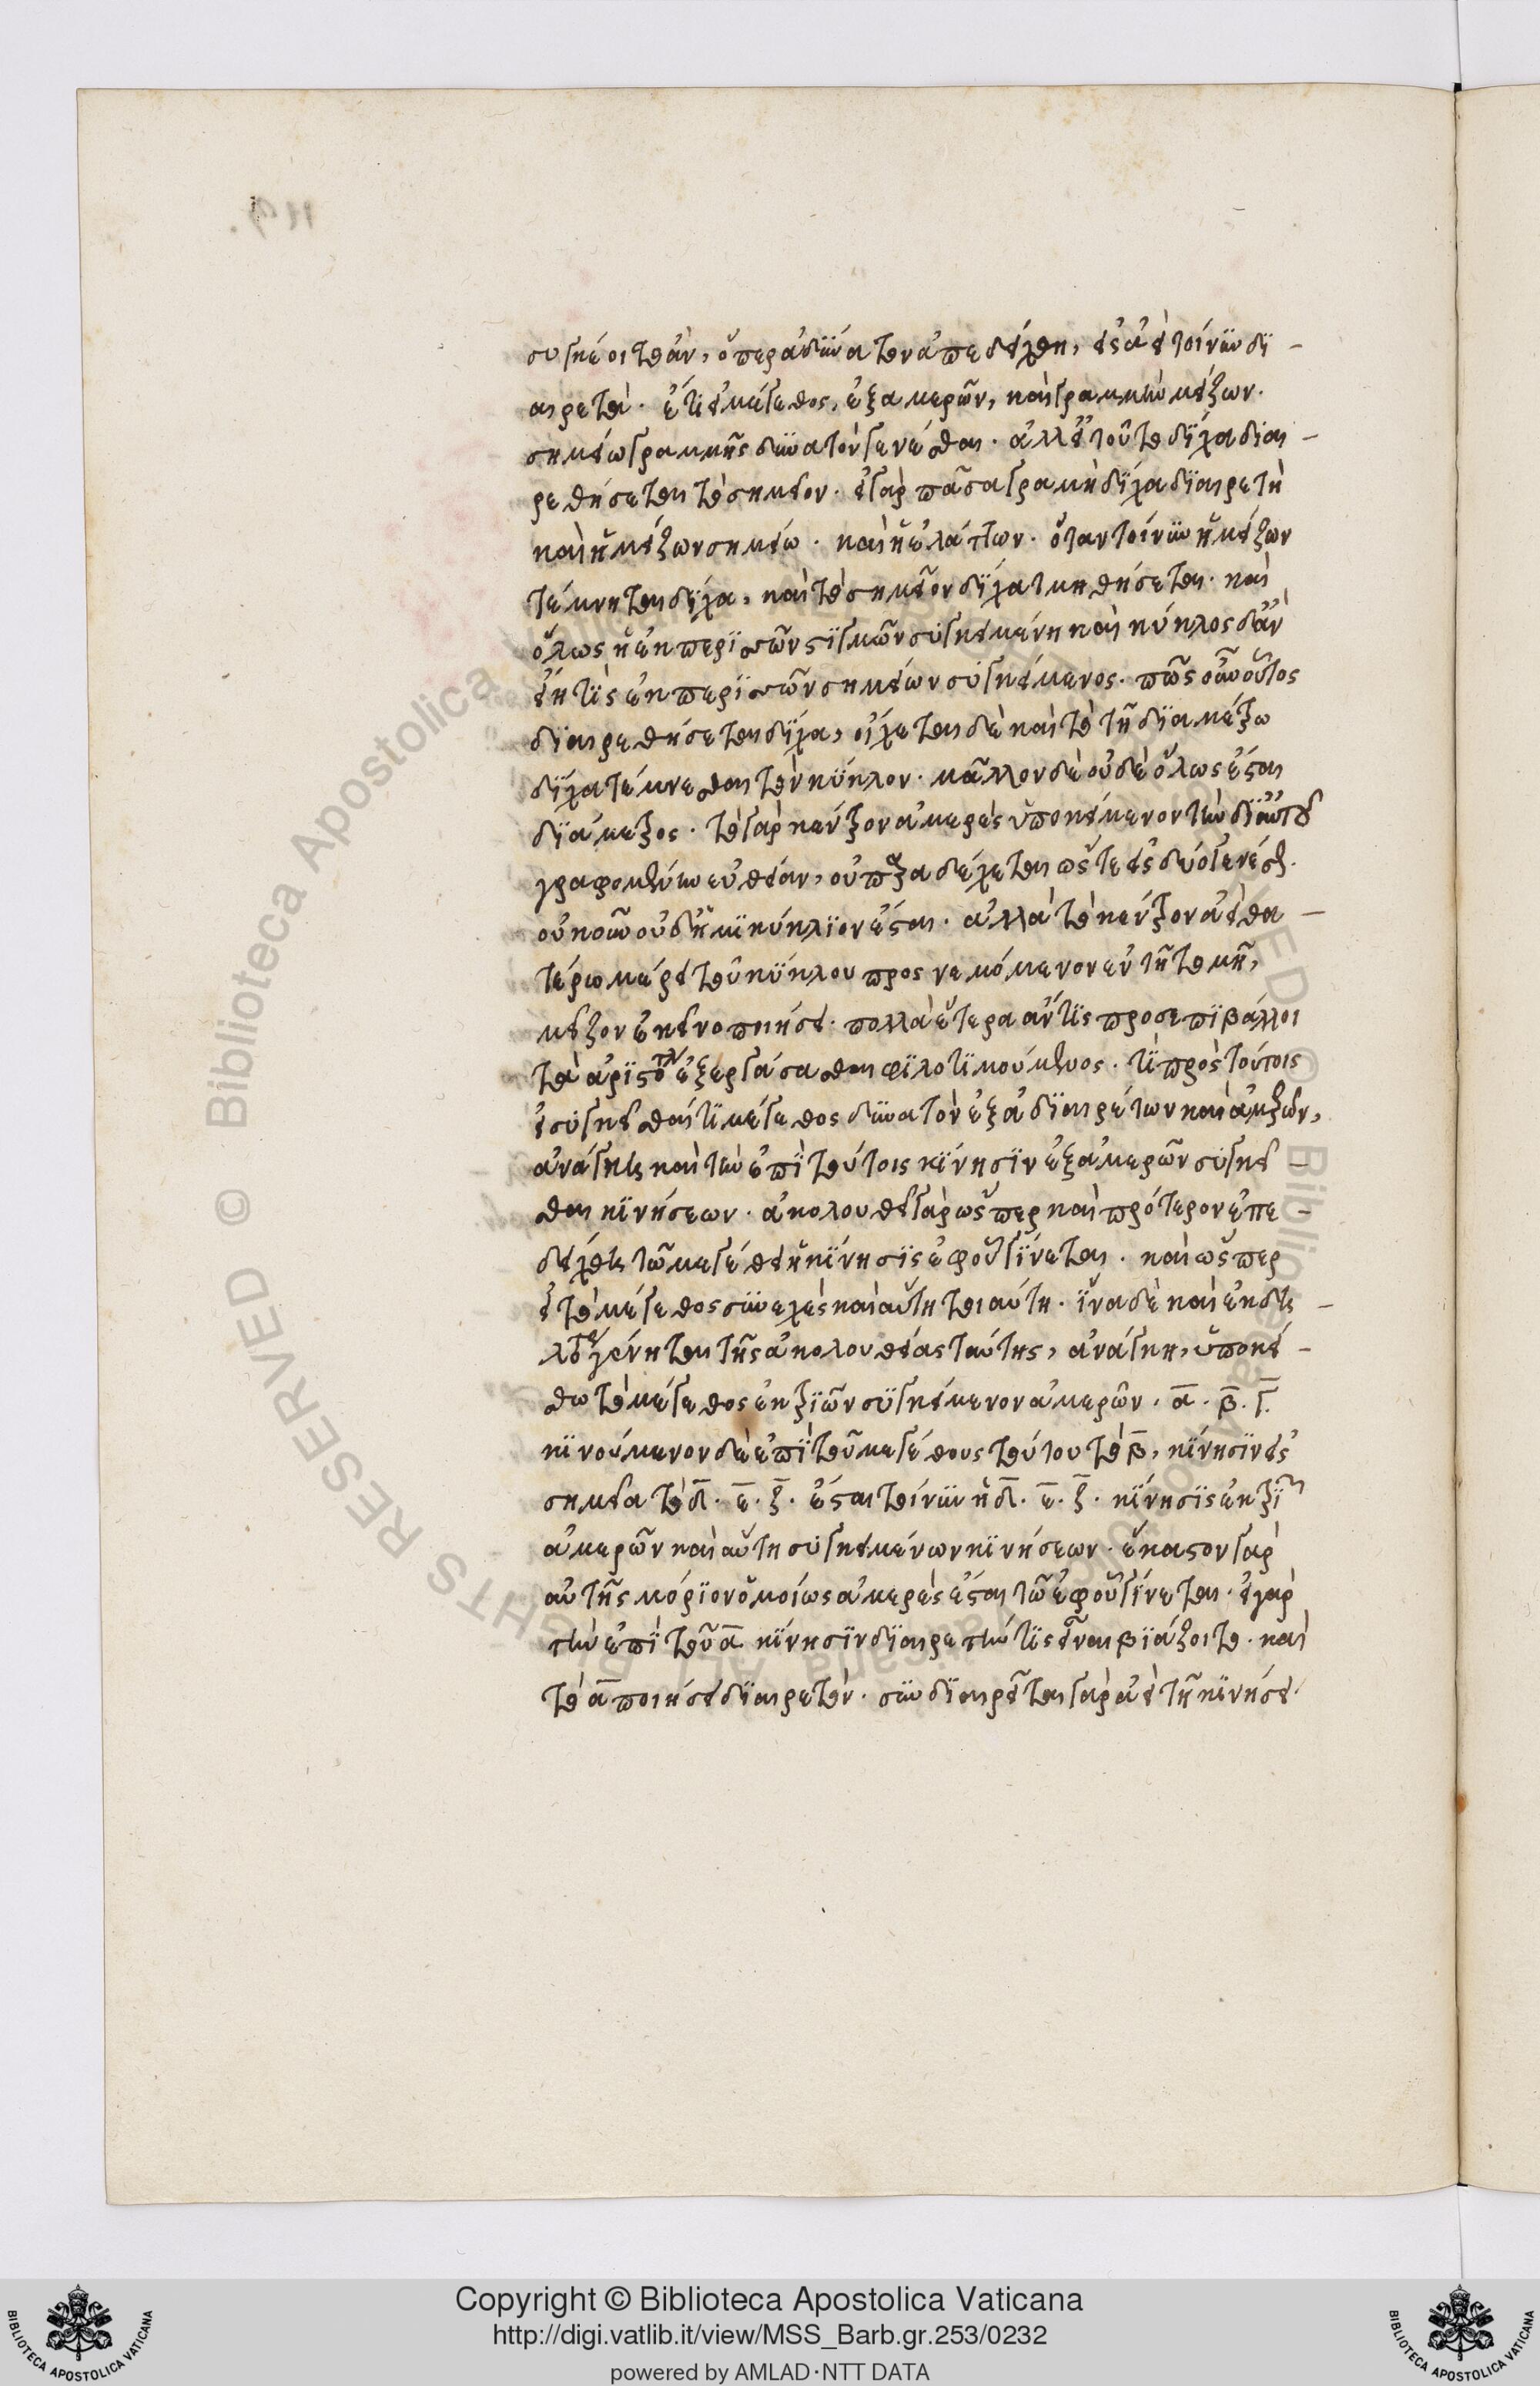 συγκέοιτο ἂν, ὅπερ ἀδύνατον ἀπεδείχθη, εἰς ἀεὶ τοίνυν δι-
αιρετά. ἔτι εἰ μέγεθος, ἐξ ἀμερῶν, καὶ γραμμὴν μείζων.
σημείω γραμμῆς δυνατὸν γενέσθαι. ἀλλ' εἰ τοῦτο δίχα διαι-
ρεθήσεται τὸ σημεῖον. εἰ γὰρ πᾶσα γραμὴ δίχα διαιρετὴ
καὶ ἡ μείζων σημείω. καὶ ἡ ἐλάττων. ὅταν τοίνυν ἡ μείζων
τέμνηται δίχα, καὶ τὸ σημεῖον δίχα τμηθήσεται. καὶ
ὅλως ἡ ἐκ περισσῶν στιγμῶν συγκειμένη καὶ κύκλος δ' ἂν
εἴη τὶς ἐκ περισσῶν σημείων συγκείμενος. πῶς οὖν οὗτος
διαιρεθήσεται δίχα, οἴχεται δὲ καὶ τὸ τῇ διαμέτρω
δίχα τέμνεσθαι τὸν κύκλον. μᾶλλον δὲ οὐδὲ ὅλως ἔσται
διάμετρος. τὸ γὰρ κέντρον ἀμερὲς ὑποκείμενον τὴν δι' αὐτοῦ
γραφομένην εὐθείαν, οὐ παραδέχεται ὥστε εἰς δύο τενέσθαι.
οὐκοῦν οὐδ' ἡμικύκλιον ἔσται. ἀλλὰ τὸ κέντρον ἀεὶ θα-
τέρω μέρει τοῦ κύκλου προσνεμόμενον ἐν τῇ τομῇ,
μεῖζον ἐκεῖνο ποιήσει. πολλὰ ἕτερα ἄν τις προσεπιβάλλοι
τὰ ἀριστοτέλους ἐξεργάσασθαι φιλοτιμούμενος. τί πρὸς τούτοις
εἰ συγκεῖσθαί τι μέγεθος δυνατὸν ἐξ ἀδιαιρέτων καὶ ἀμερῶν,
ἀνάγκη καὶ τὴν ἐπὶ τούτοις κίνησιν ἐξ ἀμερῶν συγκεῖ-
σθαι κινήσεων. ἀκολουθεῖ γὰρ ὥσπερ καὶ πρότερον ἐπε-
δείχθη τῶ μεγέθει ἡ κίνησις ἐφ' οὗ γίνεται. καὶ ὥσπερ
εἰ τὸ μέγεθος συνεχὲς καὶ αὕτη τοιαύτη. ἵνα δὲ καὶ ἐκδη-
λότερον γένηται τῆς ἀκολουθείας ταύτης, ἀνάγκη, ὑποκεί-
σθω τὸ μέγεθος ἐκ τριῶν συγκείμενον ἀμερῶν. α. β. γ.
κινούμενον δὲ ἐπὶ τοῦ μεγέθους τούτου τὸ β, κίνησιν εἰς
σημεῖα τὸ δ. ε. ζ. ἔσται τοίνυν ἡ δ. ε. ζ. κίνησις ἐκ τριῶν
ἀμερῶν καὶ αὕτη συγκειμένων κινήσεων. ἕκαστον γὰρ
αὐτῆς μόριον ὁμοίως ἀμερὲς ἔσται τῶ ἐφ' οὗ γίνεται. εἰ γὰρ
τὴν ἐπὶ τοῦ α κίνησιν διαιρετήν τις εἶναι βιάζοιτο. καὶ
τὸ α ποιήσει διαιρετόν. συνδιαιρεῖται γὰρ ἀεὶ τῇ κινήσει
Copyright © Biblioteca Apostolica Vaticana
http://digi.vatlib.it/view/MSS_Barb.gr.253/0232
powered by AMLAD·NTT DATA
BIBLIOTECA APOSTOLICA VATICANA
BIBLIOTECA APOSTOLICA VATICANA